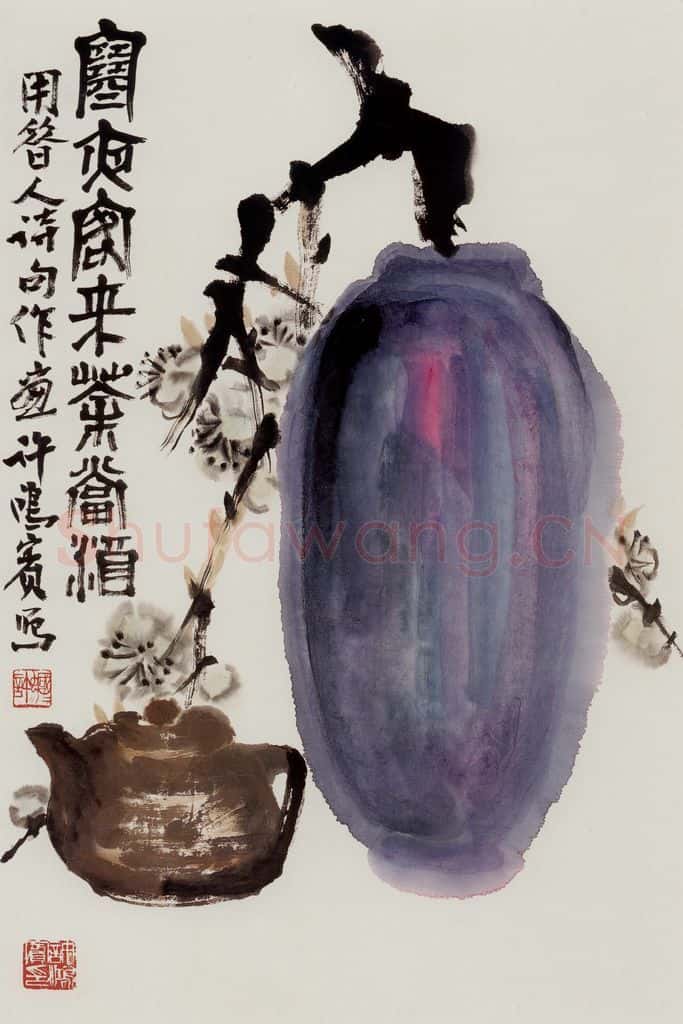 寒夜客来茶當酒
用昔人诗句作画 许鸿賓写
Shufawang.CN